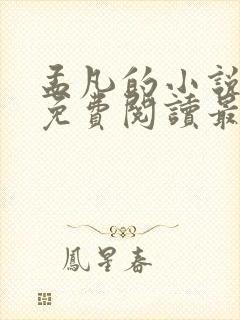 孟凡的小說
免費閱讀最
鳳星春